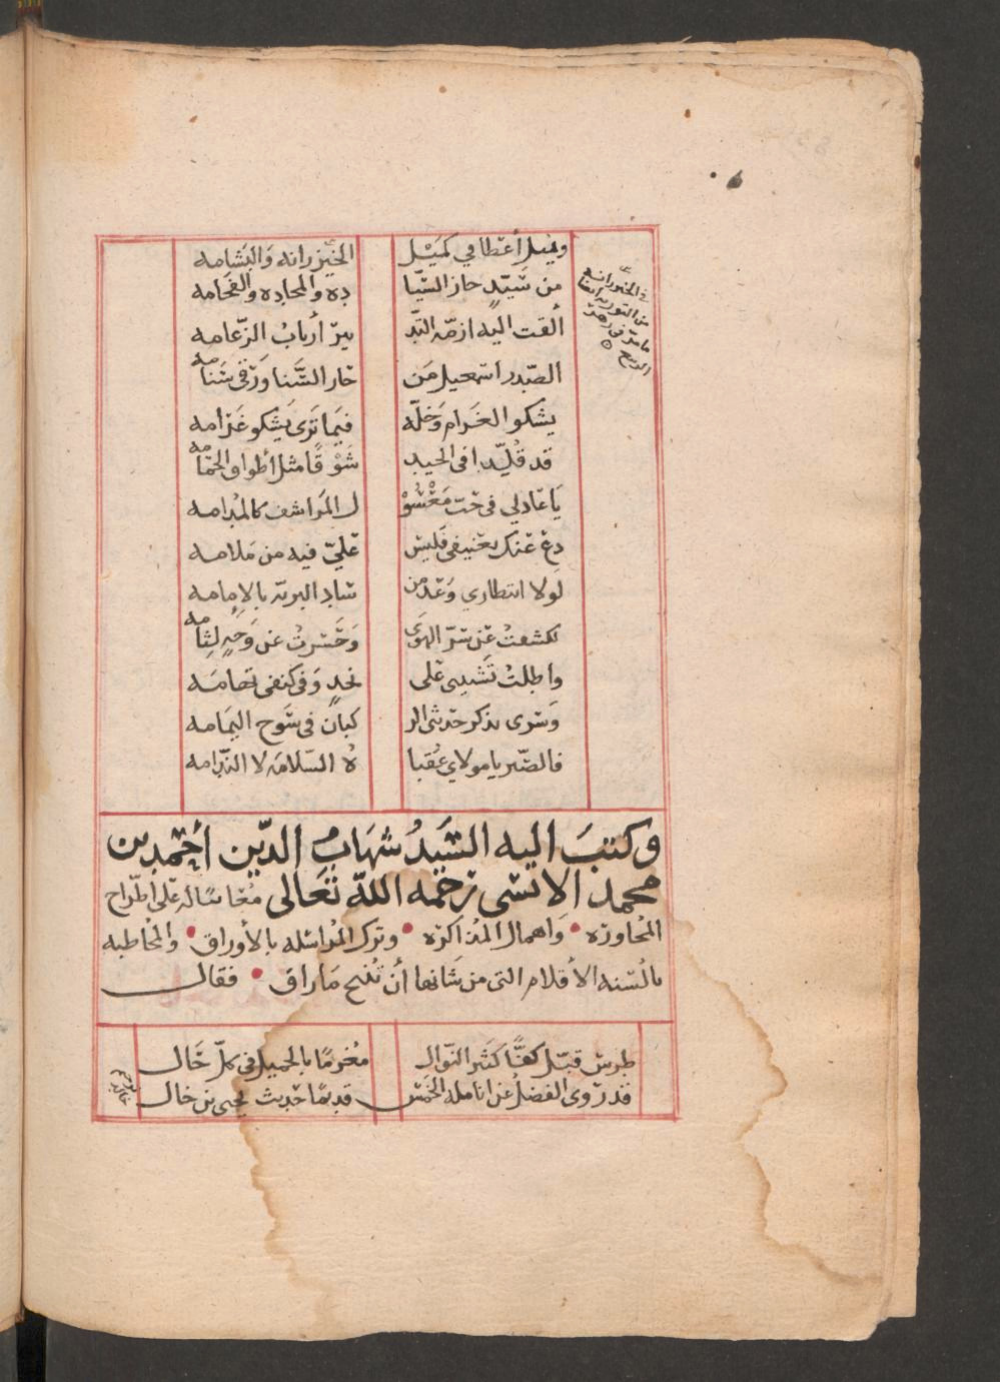 ويميل أعطافي كميل الخيزرانه والبشامه
من سيّد حاز السيا ده والمجاده والفخامه
ألقت اليه ازمّه التد بير أرباب الزعامه
الصدر اسمعيل من حاز السَّنا ورقى سَنامه
يشكو الغرام وخلّه فيما ترى يشكو غرامه
قد قُلّدا في الجيد شوقًا مثل أطواق الحمامه
يا عاذلي في حب معْسُوْ ل المراشف كالمُدامه
دع عنك تعنيفي فليس عليّ فيه من ملامه
لولا انتظاري وعد من ساد البريه بالإمامه
لكشفتُ عن سرّ الهوى وحسرتُ عن وجهٍ لثامه
واطلتُ تشبيبي على نجدٍ وفي كنفي تهامه
وسرى بذكر حديثي الر كبان في سوح اليمامه
فالصبر يا مولاي عُقبا ه السلامه لا الندامه
في الخيزرانه
من التوريه ايضا
وكتبَ اليه السَيدُ شهَابُ الدّين أحمد بن
محمد الانسي رحمه اللّه تعَالى مُعاتبًا له على اطّراح
المُحاوره • وَاهمال المُذاكره • وترك المُراسله بالأوراق • والمُخاطبه
بالْسنه الأقلام التي من شانها أن تُنتج ما راق • فقال
طرس قبّل كفًّا كثير النوال مُغرمًا بالجميل في كلّ حَال
قد روى الفضلُ عن انامله الخمس قديمًا حديث يحيى بن خال